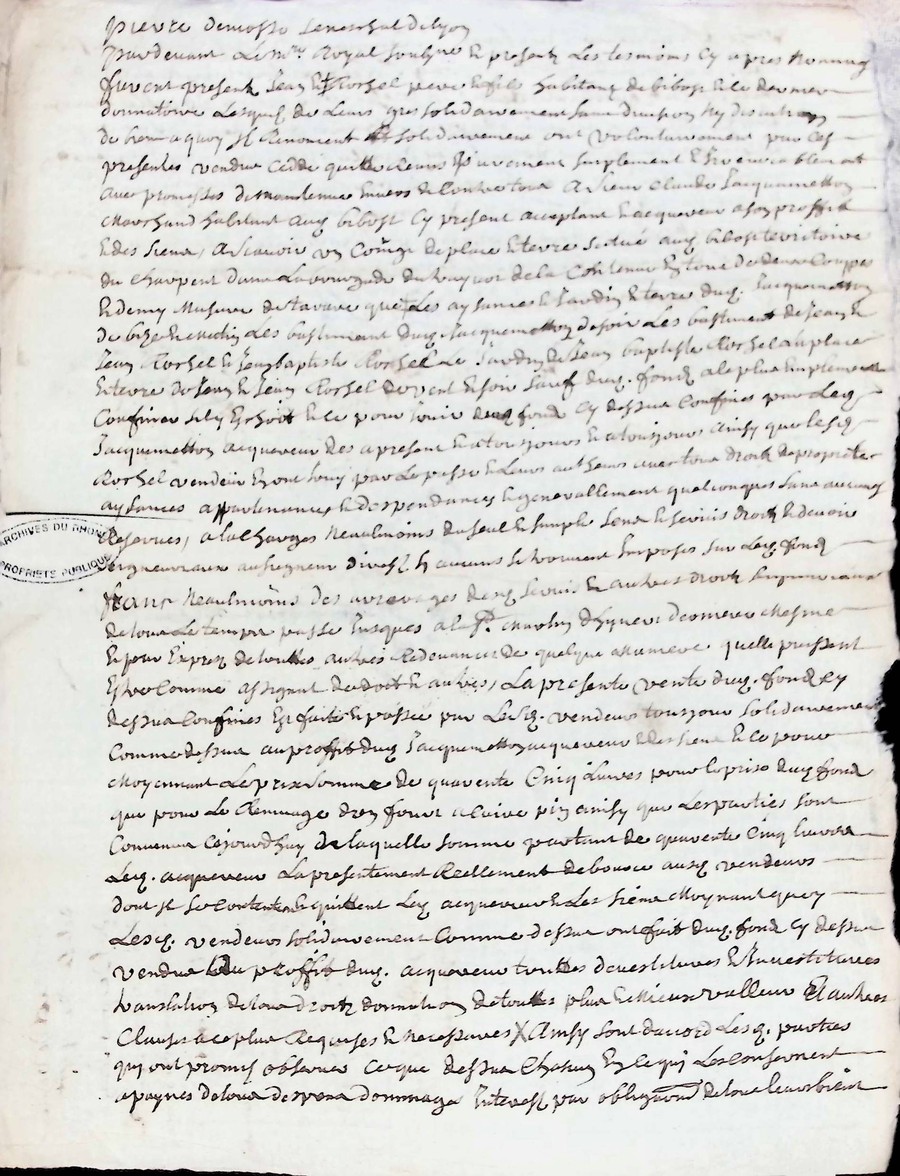 pardevant Le no.re Royal soubs.ne Et present Les tesmoins Cy apres
furent present Jean Et Rorhel pere et fils habitans de bibost
donnatoire Lesquels de Leurs gres solidairement sans division Ny discution
de bien a quoy Jl Renoncent Et solidairement ont volontairement par Ces
presentes vendue Ceddé quitte purement simplement Et Jrrevocablement
avec promesses de maintenue envers Et Contre tous A sieur Claude Jacquemetton
Marchand habitant aud. bibost Cy present acceptant Et acquereur a son proffit
Et des siens, ascavoir un de place Et terre situé aud. bibost territoire
du Charpent dans La de la Contenue En tout de deux Couppes
Et demy Mesure de tarare Les aysances Et Jardin Et terre dud. Jacquemetton
de bize Et matin Les bastiment dud. Jacquemetton de soir Les bastiment de Jean Et
Jean Rorhel Et Jean baptiste Rorhel Le Jardin de Jean baptiste Rorhel La place
Et terre de Jean Et Jean Rorhel de vent Et sauf dud. fond a le plus amplement
Confiner sil y Eschoit Et Ce pour Jouir dud fond Cy dessus Confines par Led.
Jacquemetton acquereur des apresent Et a tousjours ainsy que lesd.
Rorhel vendeur En ont Jouy par Le passe Et Leurs autheurs avec tous droit de proprietes
aysances appartenances Et despendances Et generallement quelconques sans aucunes
Reserves, a la Charges Neaulmoins du seul Et simple sens Et servis droit Et devoir
seigneuriaux au seigneur direct sy aucuns se trouvent Imposes sur Led. fond
franc Neaulmoins des arrerages desd. servis Et autres droit seigneuriaux
de tous Le temps passe Jusques a la St. Martin d'hyvert derniere Mesme
Et pour Exprez de touttes autres Redevances de quelque nature quelle puissent
Estre Comme assignat de doit Et autres, La presente vente dud. fond Cy
dessus Confines Est faite Et passee par Lesd. vendeurs tousjours solidairement
Comme dessus au proffit dud Jacquemetton acquereur Et des siens Et Ce pour
Moyennant Le prix somme de quarente Cinq Livres pour Le prix dud fond
que pour Le d'un four a Cuire pin ainsy que Les parties sont
Convenus Cejourdhuy de laquelle somme partant de quarente Cinq Livres
Led. acquereur La presentement Reellement debource ausd. vendeurs
dont Jl se Contentent Et quittent Led acquereur Et Les siens Moyenant quoy
Lesd. vendeurs solidairement Comme dessus ont fait dud. fond Cy dessus
vendue au proffit dud. acquereur touttes devestitures Et Jnvestitures
translation de tous droit donnation de touttes plus Et Mieux valleur Et autres
Clauses a ce plus Requises Et Necessaires X ainsy sont dacord Lesd. parties
quy ont promis observer Ce que dessus Chacun En Ce quy Les Consernent
a paynes de tous despens dommage Interest par obligation de tous leurs biens
ARCHIVES DU RHONE
PROPRIETE PUBLIQUE